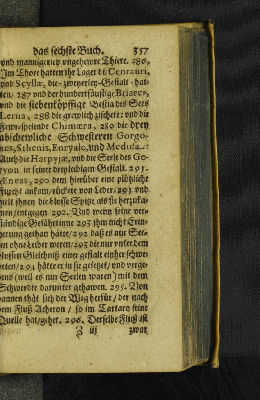 das sechste Buch. 357
und mannigerley ungeheure Thiere. 286.
Im Thore hatten ihr Lager di Centauri,
und Scyllæ, die zweyerley Gestalt hat-
ten, 287 und der hundertfäustige Briareus,
und die siebenköpffige Bestia des Sees
Lerna, 288 die grewlich zischete: und die
Fewrspeiende Chimæra, 289 die drey
abschewliche Schwesteren Gorgo-
nes, Sthenis, Enryale, und Medusa:
Auch die Harpyjæ, und die Seele des Ge-
ryon in seiner dreyleibigen Gestalt. 291.
Æneas, 290 dem hierüber eine plötzliche
Furcht ankam, rückte von Leder, 291 und
hielt ihnen die blosse Spitze als sie herzuka-
men, entgegen 292. Und wenn seine ver-
ständige Gefährtinne 293 ihm nicht Erin-
nerung gethan hätte, 292 daß es nur See-
len ohne Leiber weren, 293 die nur unter dem
blossen Gleichniß einer gestalt einher schwe-
beten, 293 hätte er in sie gesetzet, und verge-
bens (weil es nur Seelen waren) mit dem
Schwerdte darunter gehawen. 295. Von
dannen thät sich der Weg herfür, der nach
dem Fluß Acheron, so im Tartaro seine
Quelle hat, gehet. 296. Derselbe Fluß ist
Z iij zwar